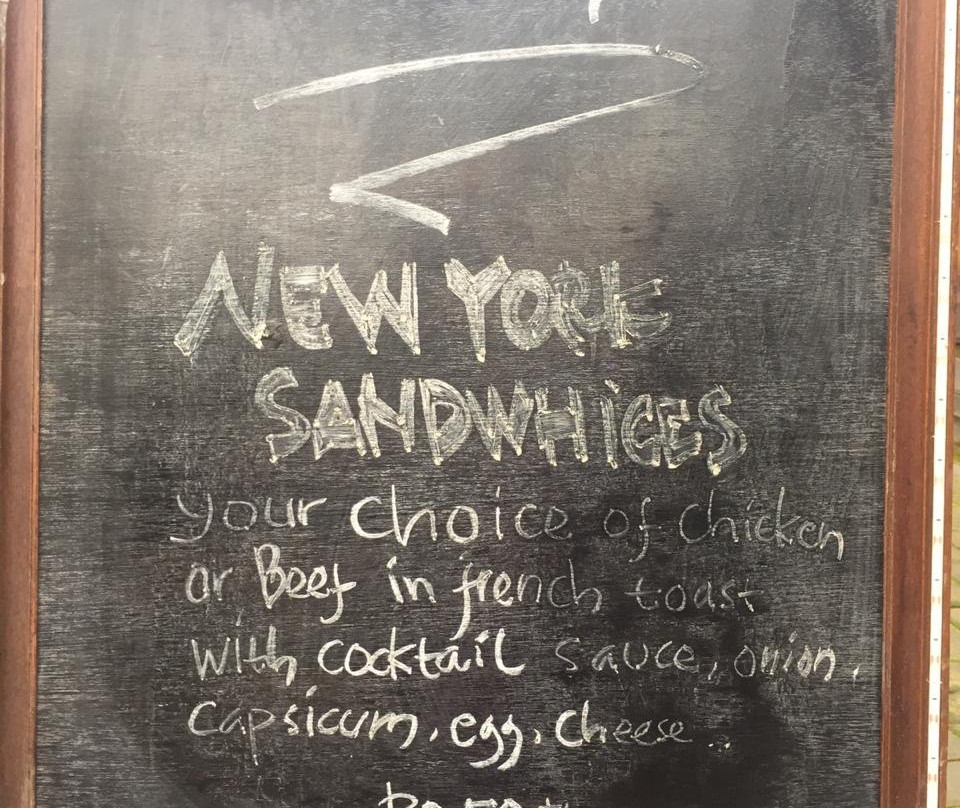 NEW YORK
SANDWHiCES
your choice of chicken
or Beef in french toast
with cocktail sauce, onion,
capsicum, egg, cheese.